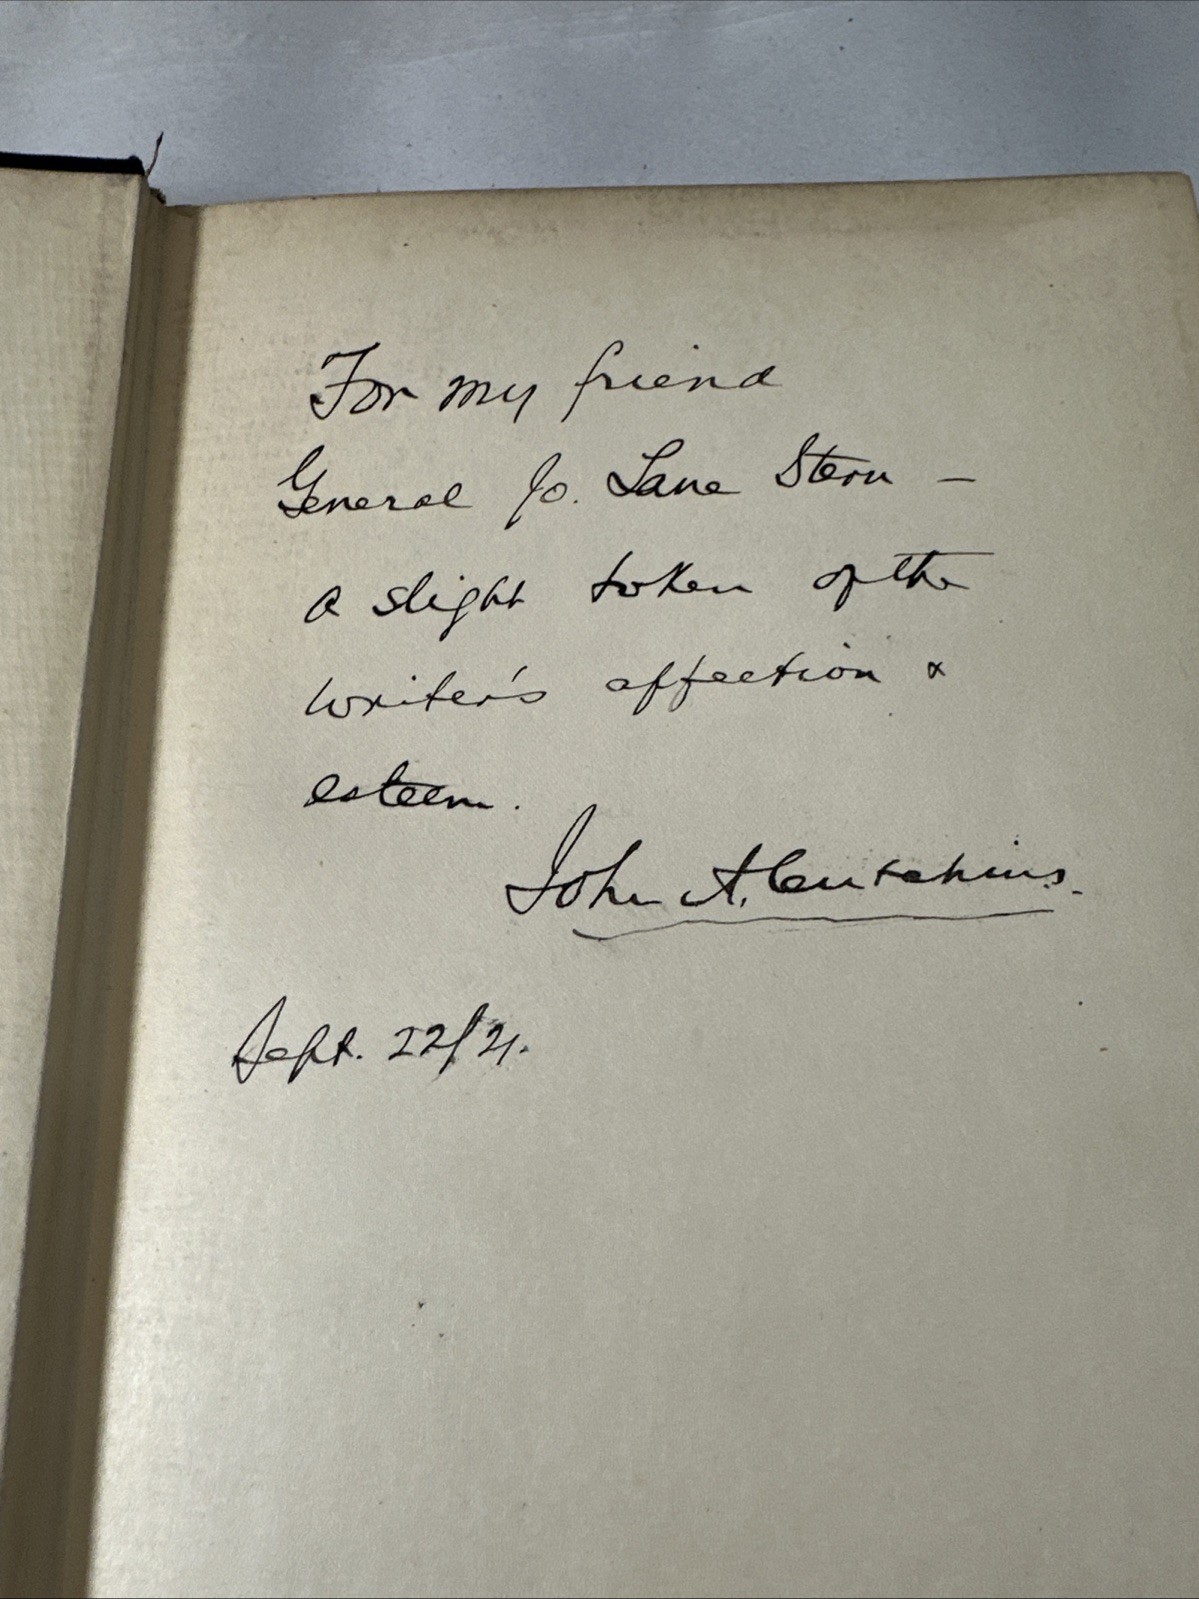 For my friend
General Jo. Lane Stern —
a slight token of the
writer's affection &
esteem.
John A. Cutchins.
Sept. 22/21.